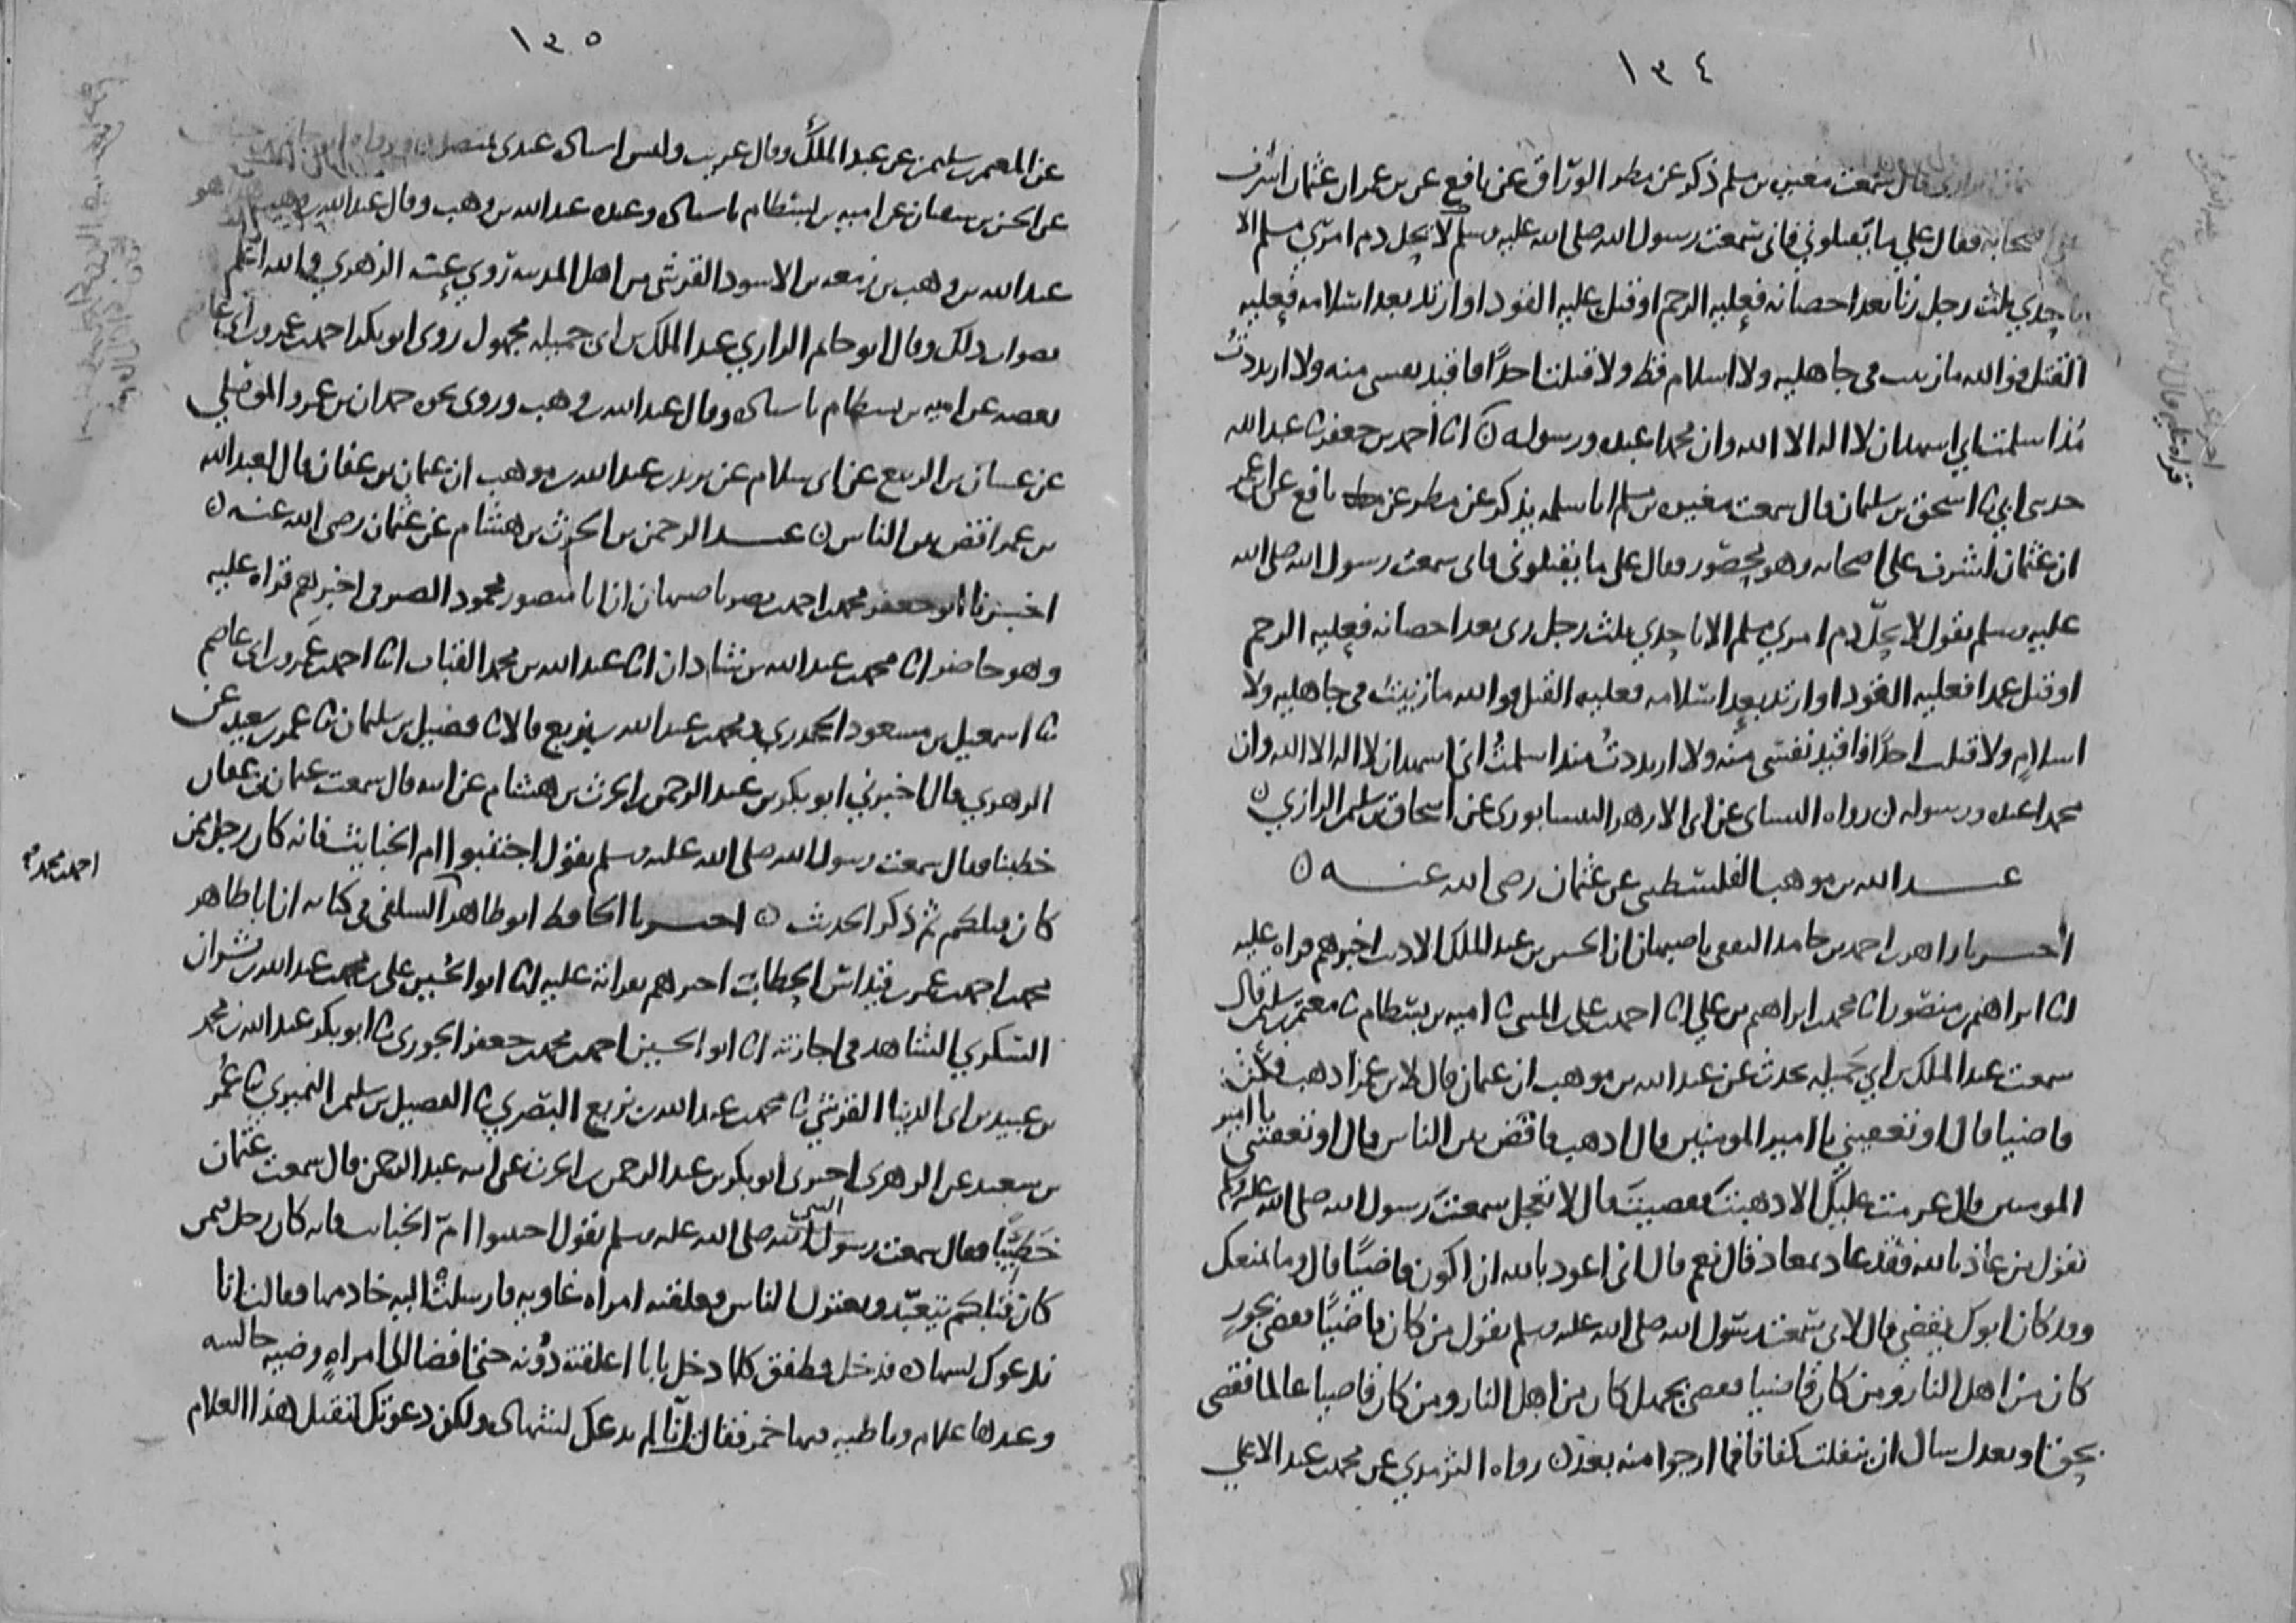 ١٣٤
قال سمعت مغيرة بن مسلم ذكر عن مطر الوراق عن نافع عن بن عمر ان عثمان اشرف
على اصحابه فقال علي ما تقتلوني فاني سمعت رسول الله صلى الله عليه وسلم لا يحل دم امرئ مسلم الا
باحدي ثلث رجل زنا بعد احصانه فعليه الرجم او قتل عليه القود او ارتد بعد اسلامه فعليه
القتل فوالله ما زنيت في جاهلية ولا اسلام قط ولا قتلت احدا فاقيد نفسي منه ولا ارتددت
مذ اسلمت اني اشهد ان لا اله الا الله وان محمدا عبده ورسوله ں انا احمد بن جعفر ثنا عبد الله
حدثني ابي ثنا اسحق بن سليمان قال سمعت مغيره بن مسلم ابا سلمه يذكر عن مطر عن نافع عن ابن عمر
ان عثمان اشرف على اصحابه وهو محصور فقال على ما تقتلوني فاني سمعت رسول الله صلى الله
عليه وسلم يقول لا يحل دم امرئ مسلم الا باحدي ثلث رجل زنى بعد احصانه فعليه الرجم
او قتل عمدا فعليه القود او ارتد بعد اسلامه فعليه القتل فوالله ما زنيت في جاهليه ولا
اسلام ولا قتلت احدا فاقيد نفسي منه ولا ارتددت منذ اسلمت اني اشهد ان لا اله الا الله وان
محمدا عبده ورسوله ں رواه النسائى عن ابى الازهر النيسابورى عن اسحاق بن سليمن الرازي ں
عبد الله بن موهب الفلسطيني عن عثمان رضى الله عنه ں
اخبرنا زاهر بن احمد بن حامد الثقفي باصبهان ان الحسين بن عبد الملك الاديب اخبرهم قراه عليه
انا ابراهيم بن منصور انا محمد بن ابراهيم بن علي انا احمد بن علي بن المثنى ثنا اميه بن بسطام ثنا معتمر بن سليمن قال
سمعت عبد الملك بن ابي جميله يحدث عن عبد الله بن موهب ان عثمان قال لابن عمر اذهب فكن
قاضيا قال او تعفيني يا امير المومنين قال اذهب فاقض بين الناس قال او تعفيني يا امير
المومنين قال عزمت عليك الا ذهبت فقضيت قال لا تعجل سمعت رسول الله صلى الله عليه وسلم
يقول من عاذ بالله فقد عاذ بمعاذ قال نعم قال اني اعوذ بالله ان اكون قاضيا قال وما يمنعك
وقد كان ابوك يقضي قال لاني سمعت رسول الله صلى الله عليه وسلم يقول من كان قاضيا فقضى بجور
كان من اهل النار ومن كان قاضيا فقضى بجهل كان من اهل النار ومن كان قاضيا عالما فقضى
بحق او بعدل سال ان ينفلت كفافا فما ارجوا منه بعد ں رواه الترمدي عن محمد بن عبد الاعلي
١٣٥
عن المعتمر بن سليمن عن عبد الملك وقال غريب وليس اسناده عندى بمتصل
عن الحسن بن سفيان عن اميه بن بسطام باسناده وعنده عبد الله بن وهب وقال عبد الله بن وهب هو
عبد الله بن وهب بن زمعه بن الاسود القرشي من اهل المدينه روي عنه الزهري والله اعلم
بصواب ذلك وقال ابو حاتم الرازي عبد الملك بن ابى جميله مجهول روى ابو بكر احمد بن عمرو بن ابي عاصم
بعضه عن اميه بن بسطام باسناده وقال عبد الله بن وهب وروى نحوه حمدان بن عمرو الموصلي
عن غسان بن الربيع عن ابى سلام عن يزيد بن عبد الله بن موهب ان عثمان بن عفان قال لعبد الله
بن عمر اقض بين الناس ں عبد الرحمن بن الحرث بن هشام عن عثمان رضى الله عنه ں
اخبرنا ابو جعفر محمد بن احمد بن نصر باصبهان ان ابا منصور محمود الصيرفي اخبرهم قراه عليه
وهو حاضر انا محمد بن عبد الله بن شاذان انا عبد الله بن محمد القباب انا احمد بن عمرو بن ابى عاصم
ثنا اسمعيل بن مسعود الجحدري ومحمد بن عبد الله بن بزيع قالا ثنا فضيل بن سليمان ثنا عمر بن سعيد عن
الزهري قال اخبرني ابو بكر بن عبد الرحمن بن الحرث بن هشام عن ابيه قال سمعت عثمان بن عفان
خطبنا فقال سمعت رسول الله صلى الله عليه وسلم يقول اجتنبوا ام الخبايث فانه كان رجل ممن
كان قبلكم ثم ذكر الحديث ں اخبرنا الحافظ ابو طاهر السلفي في كتابه ان ابا طاهر
محمد بن احمد بن عمر بن قيداس الحطاب اخبرهم بقراته عليه انا ابو الحسين على بن محمد بن عبد الله بن بشران
السكري الشاهد في اجازته انا ابو الحسين احمد بن محمد بن جعفر الجوزى ثنا ابو بكر عبد الله بن محمد
بن عبيد بن ابى الدنيا القرشي ثنا محمد بن عبد الله بن بزيع البصري ثنا الفضيل بن سليمن النميري ثنا عمر
بن سعيد عن الزهرى اخبرنى ابو بكر بن عبد الرحمن بن الحرث عن ابيه عبد الرحمن قال سمعت عثمان
خطيبا فقال سمعت رسول الله النبي صلى الله عليه وسلم يقول اجتنبوا ام الخبايث فانه كان رجل فيمن
كان قبلكم يتعبد ويعتزل الناس فعلقته امراه غاويه فارسلت اليه خادمها فقالت انا
ندعوك لشهاده فدخل فطفق كلما دخل بابا اغلقته دونه حتى افضا الى امراه وضيه جالسه
وعندها غلام وباطيه فيها خمر فقالت انا لم ندعك لشهاده ولكن دعوتك لتقتل هذا الغلام